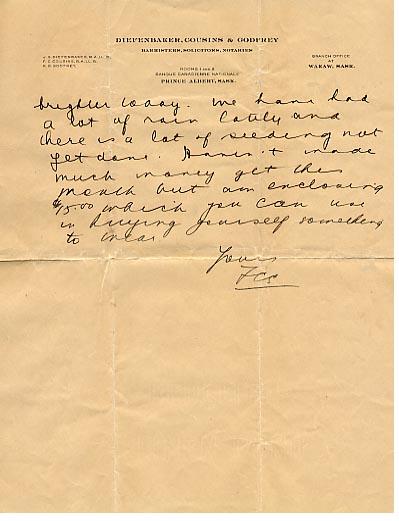 DIEFENBAKER, COUSINS & GODFREY
BARRISTERS, SOLICITORS, NOTARIES
J. G. DIEFENBAKER, B.A., LL.B.
F. C. COUSINS, B.A., LL.B.
R. GODFREY
BRANCH OFFICE
AT
WAKAW, SASK.
ROOMS 1 AND 2
BANQUE CANADIENNE NATIONALE
PRINCE ALBERT, SASK.
brighter today. We have had
a lot of rain lately and
there is a lot of seeding not
yet done. Haven't made
much money yet this
month but am enclosing
$15.00 which you can use
in buying yourself something
to wear
Yours
FCC